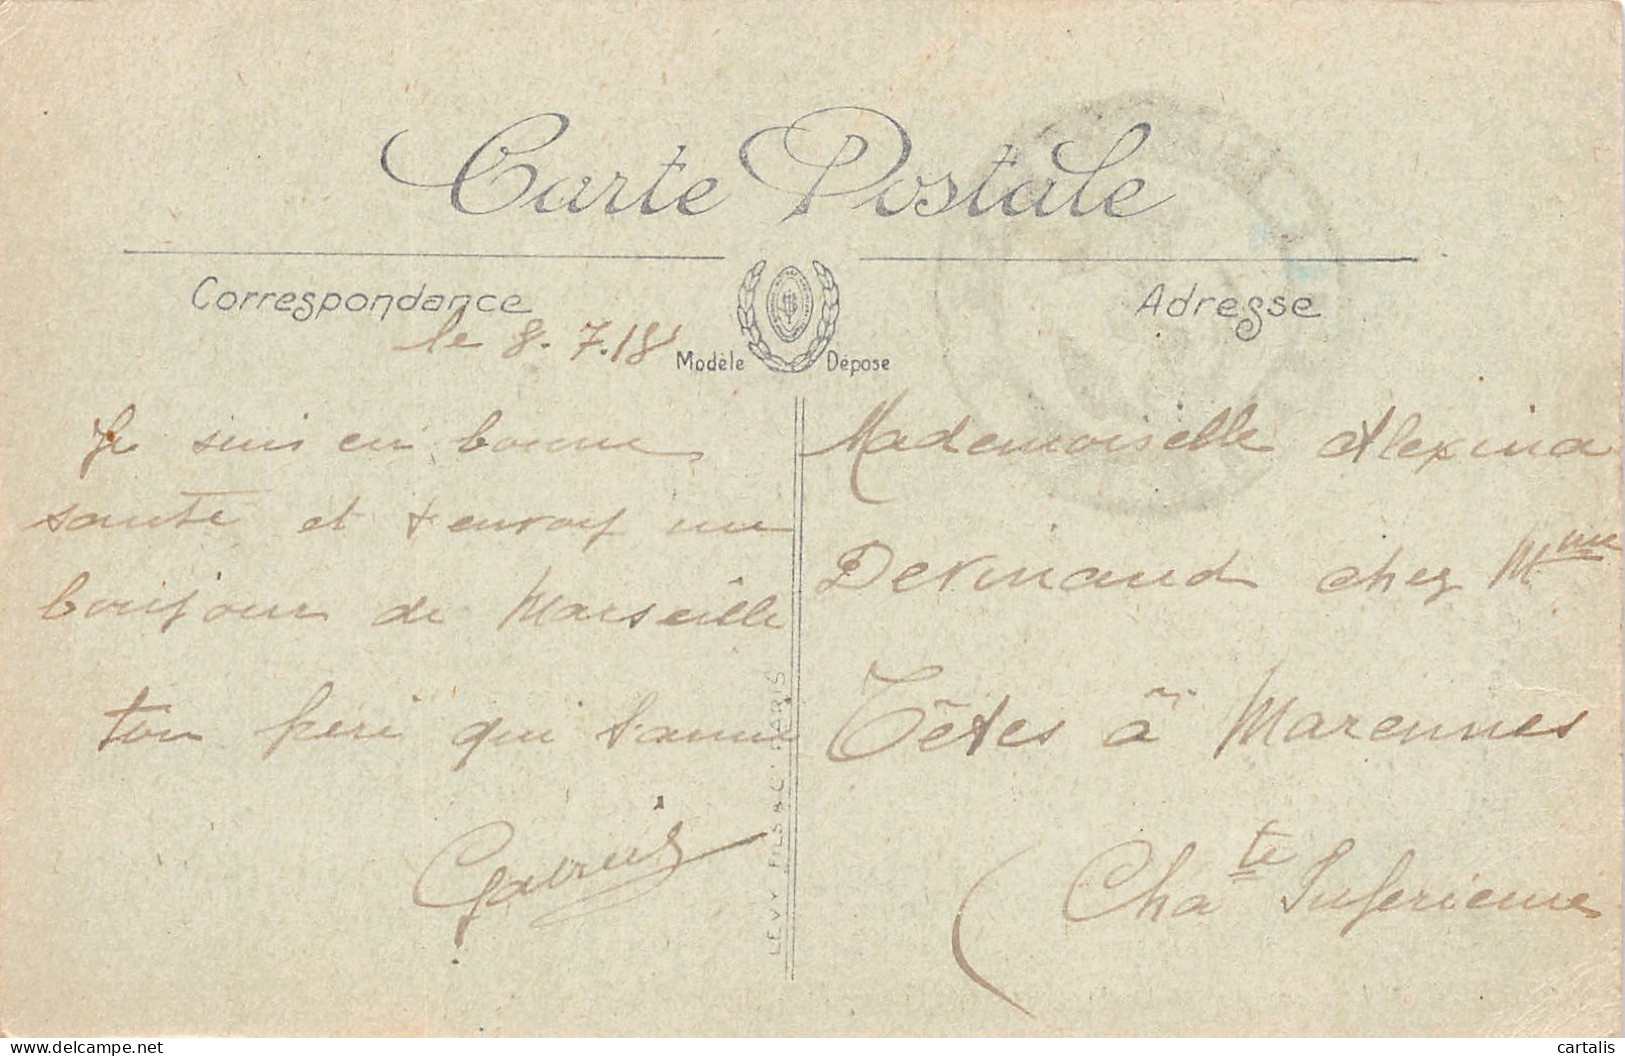 Carte Postale
Correspondance
Adresse
le 8.7.18
Modèle Déposé
Je suis en bonne
santé et t envoy un
bonjour de Marseille
ton pere qui t'aime
LEVY FILS & Cie PARIS
Mademoiselle Alexina
chez Mme
Têtes à Marennes
(Chate Inferieure
delcampe.net
cartalis